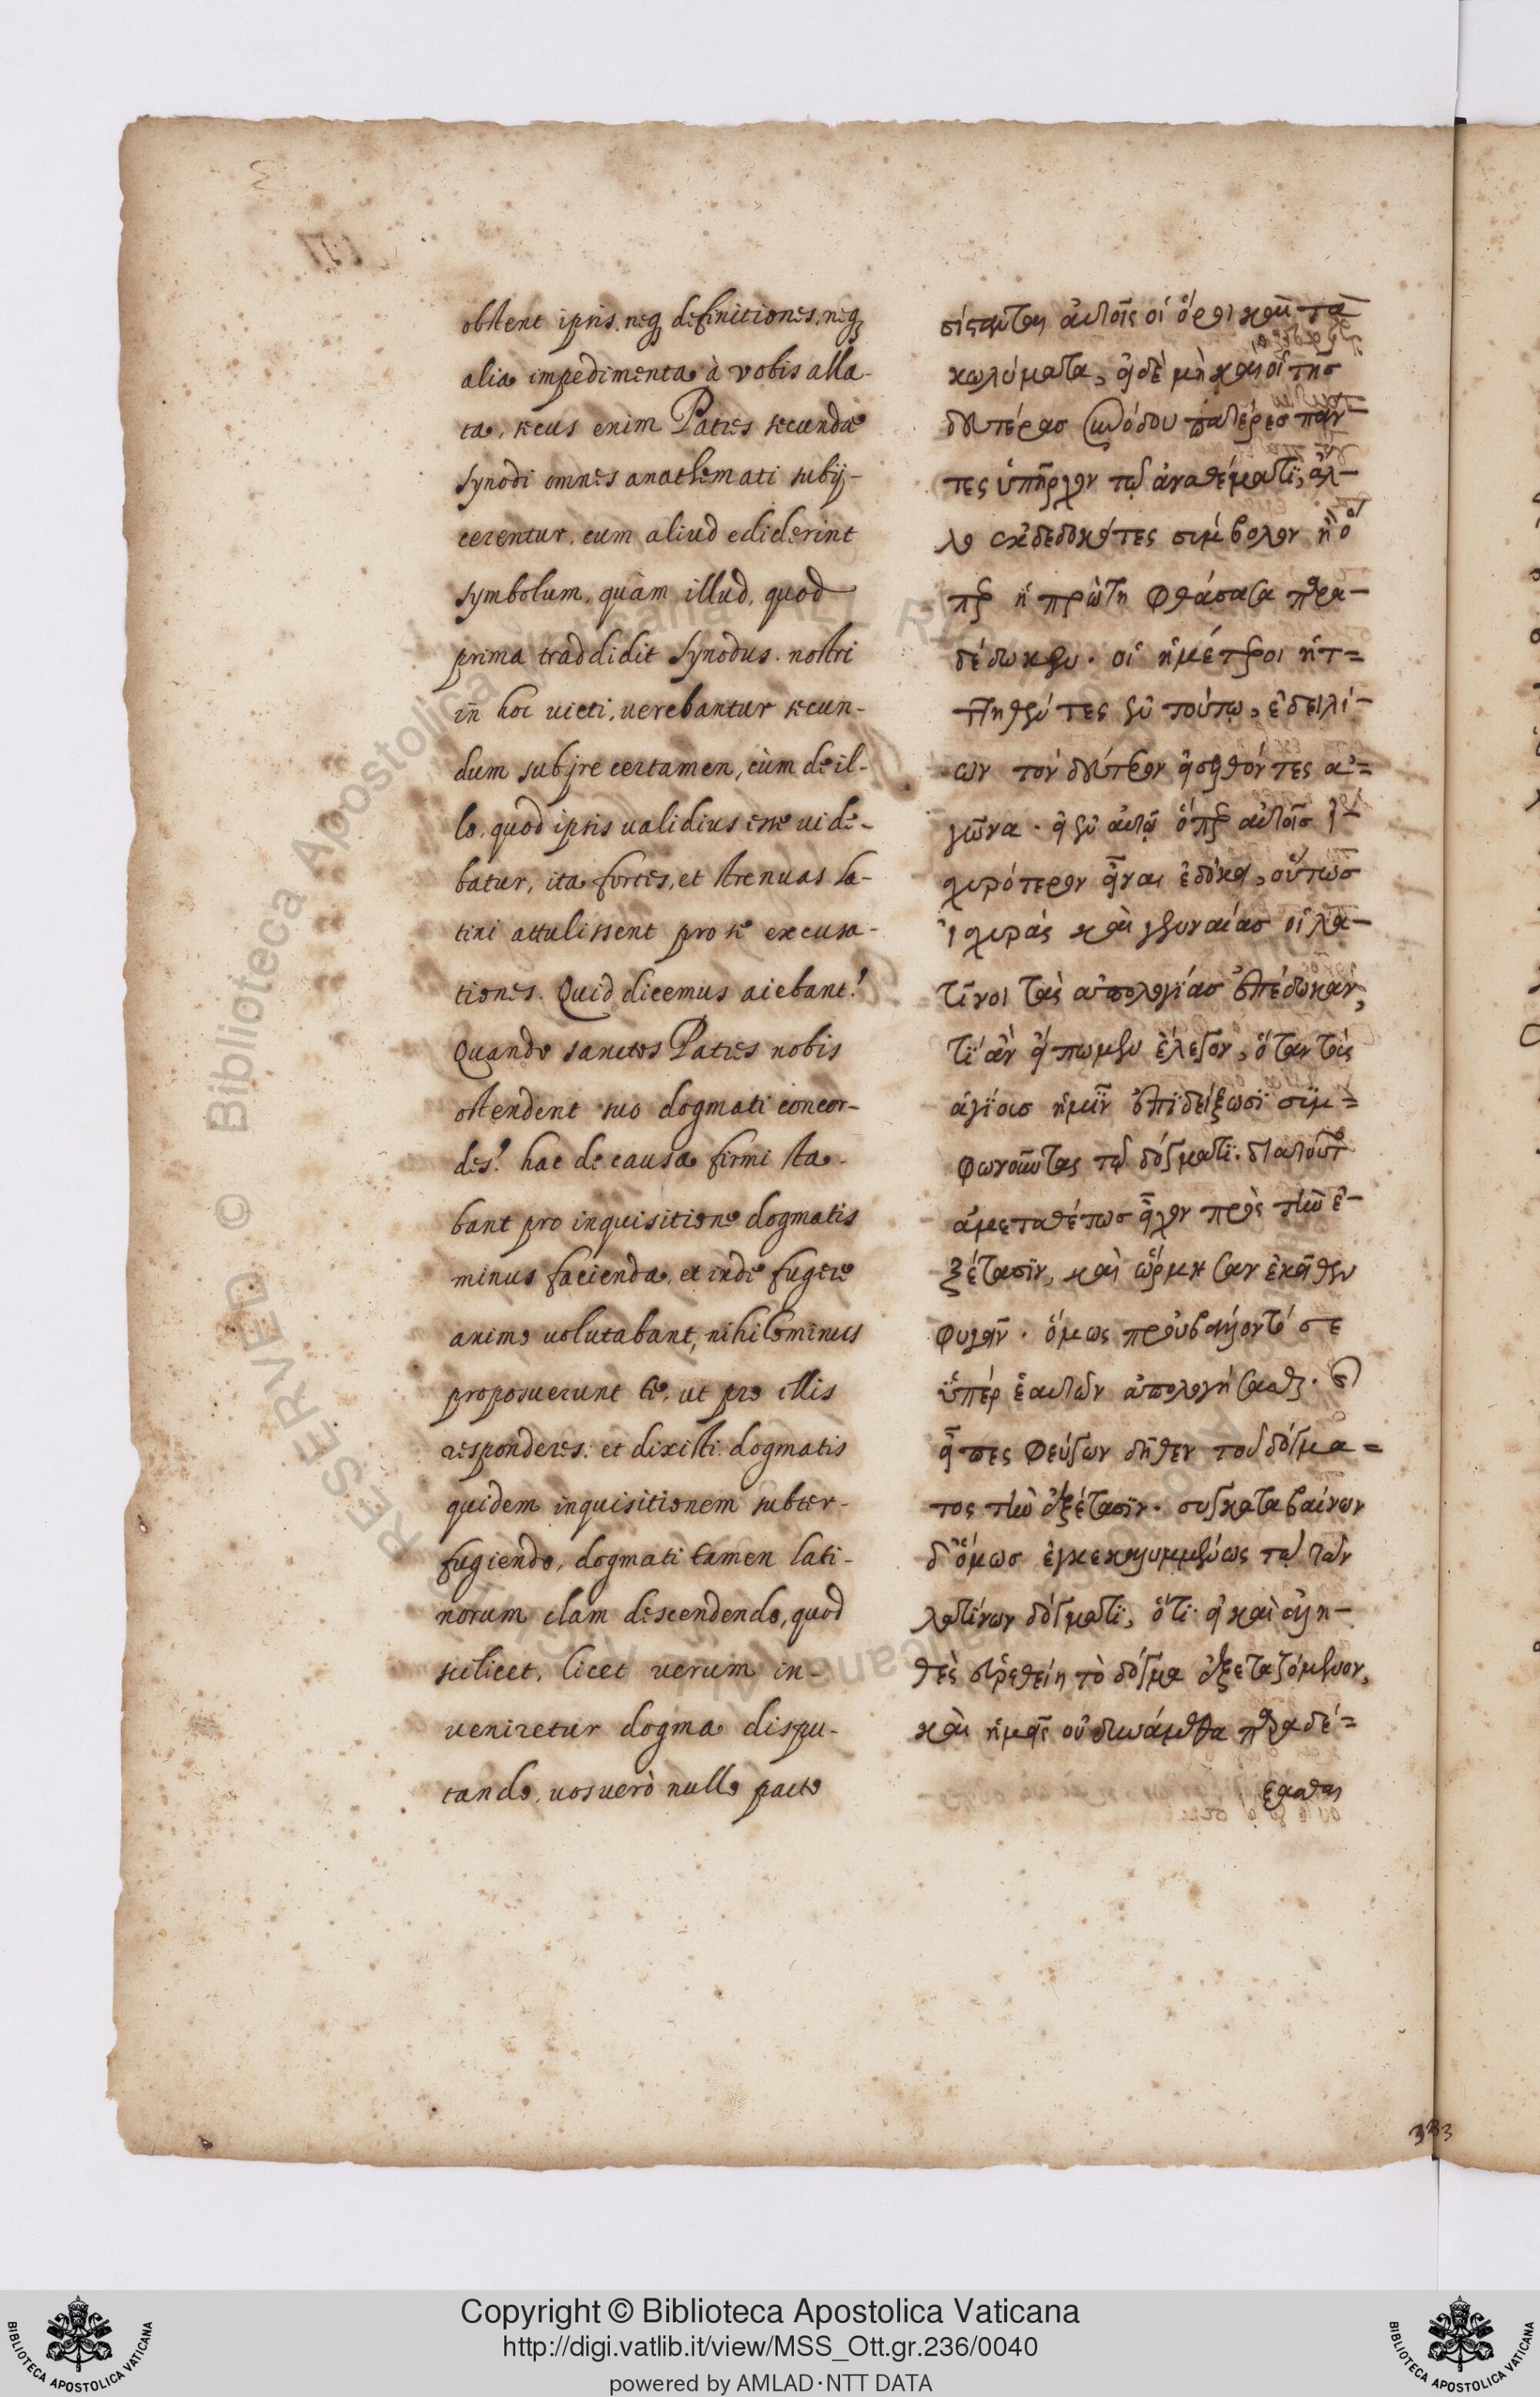 obstent ipsis, neq definitiones, neq
alia impedimenta à vobis alla-
ta, secus enim Patres secundæ
synodi omnes anathemati subij-
cerentur, cum aliud ediderint
symbolum, quàm illud, quod
prima traddidit synodus. nostri
in hoc uicti, uerebantur secun-
dum subjre certamen, cùm de il-
lo, quod ipsis ualidius esse uide-
batur, ita fortes, et strenuas la-
tini attulissent pro se excusa-
tiones. Quid dicemus aiebant?
Quando sanctos Patres nobis
ostendent suo dogmati concor-
des? hac de causa firmi sta-
bant pro inquisitione dogmatis
minus facienda, et inde fugere
animo uolutabant, nihilominus
proposuerunt te, ut pro illis
responderes: et dixisti. dogmatis
quidem inquisitionem subter-
fugiendo, dogmati tamen lati-
norum clam descendendo, quod
scilicet, licet uerum in-
ueniretur dogma dispu-
tando, uos uerò nullo pacto
αὐτοῖς οἱ ὅροι καὶ τὰ
κωλύματα, εἰ δὲ μὴ καὶ οἱ τῆσ
δευτέρασ συνόδου πατέρεσ πάν-
τες ὑπῆρχον τῷ ἀναθέματϊ, ἄλ-
λο ἐκδεδοκότες σύμβολον ἢ ὅ
περ ἡ πρώτη φθάσασα παρα-
δέδωκεν. οἱ ἡμέτεροι ἡτ=
τηθέντες ἐν τούτῳ, ἐδειλί-
ων τὸν δεύτερον εἰσελθόντες ἀ=
γῶνα. εἰ ἐν αὐτῷ ὅπερ αὐτοῖσ ἰ-
χυρότερον εἶναι ἐδόκει, οὕτωσ
ἰχυρὰς καὶ γενναίασ οἱ λα-
τῖνοι τὰς ἀπολογίασ ἐπέδωκαν,
τί ἂν εἴπωμεν ἔλεγον, ὅταν τοὺς
ἁγίουσ ἡμῖν ἐπιδείξωσϊ συμ=
φωνοῦντας τῷ δόγματϊ. διατοῦτο
ἀμεταθέτωσ εἶχον πρὸς τὴν ἐ-
ξέτασϊν, καὶ ὥρμησαν ἐκεῖθεν
φυγεῖν. ὅμως προὐβάλοντό σε
ὑπέρ ἑαυτῶν ἀπολογήσασθαι. καὶ
εἶπες φεύγων δῆθεν τοῦ δόγμα=
τος τὴν ἐξέτασϊν. συγκαταβαίνων
δ' ὅμωσ ἐγκεκαλυμμένως τῷ τῶν
λατίνων δόγματϊ, ὅτϊ εἰ καὶ ἀλη-
θὲς εὑρεθείη τὸ δόγμα ἐξεταζόμενον,
καὶ ἡμεῖς οὐ δυνάμεθα παραδέ=
ξασθαι
333
Copyright © Biblioteca Apostolica Vaticana
http://digi.vatlib.it/view/MSS_Ott.gr.236/0040
powered by AMLAD·NTT DATA
BIBLIOTECA APOSTOLICA VATICANA
BIBLIOTECA APOSTOLICA VATICANA